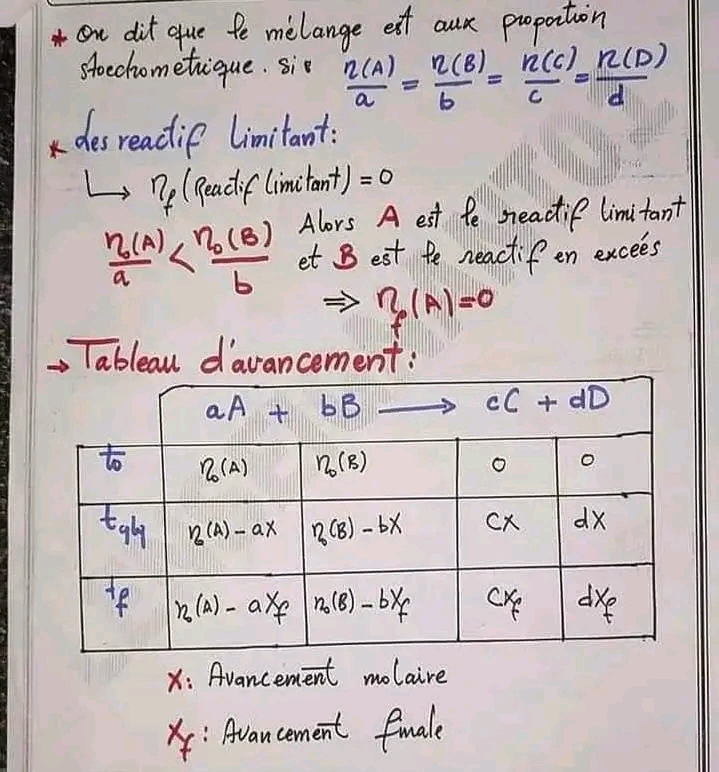 * On dit que le mélange est aux proportion
stoechometrique. si: n(A)/a = n(B)/b = n(C)/c = n(D)/d
* des reactif limitant:
↳ nf (Reactif limitant) = 0
n₀(A)/a < n₀(B)/b Alors A est le reactif limitant
et B est le reactif en excées
⇒ nf(A)=0
→ Tableau d'avancement:
aA + bB ⟶ cC + dD
t₀ n₀(A) n₀(B) 0 0
tqlq n₀(A) - ax n₀(B) - bx cx dx
tf n₀(A) - axf n₀(B) - bxf cxf dxf
x: Avancement molaire
xf: Avancement finale